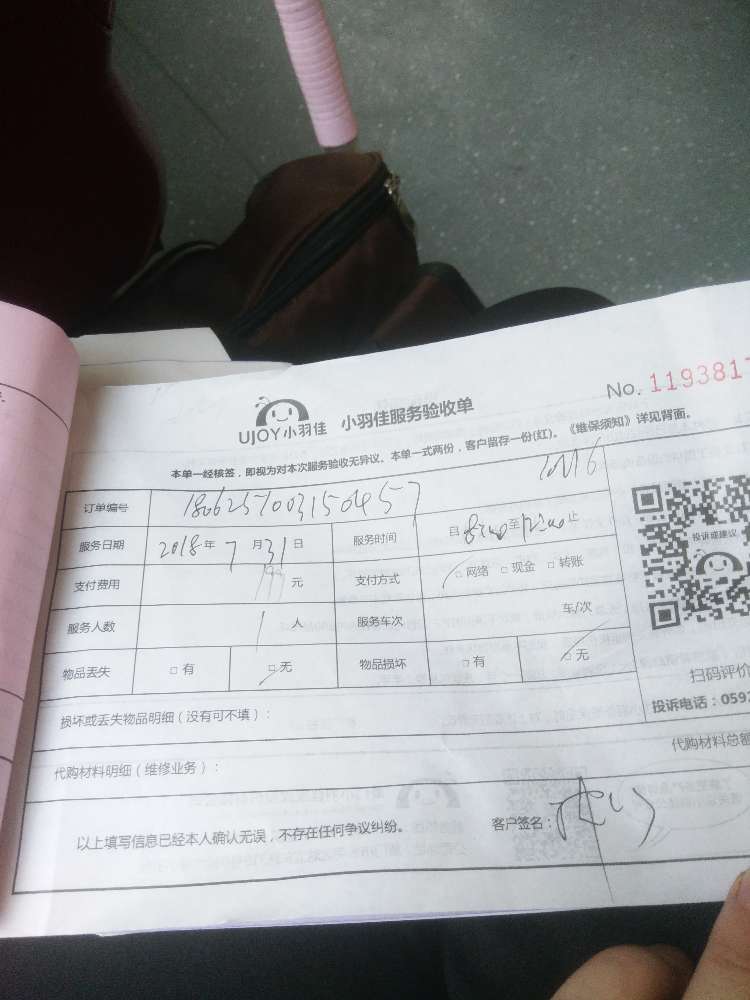 No. 1193817
UJOY小羽佳 小羽佳服务验收单
本单一经核签，即视为对本次服务验收无异议。本单一式两份，客户留存一份(红)。《维保须知》详见背面。
订单编号 1806257003150457
服务日期 2018年7月31日 服务时间 自8:00至12:00止
支付费用 199元 支付方式 □网络 □现金 □转账
服务人数 1人 服务车次 车/次
物品丢失 □有 □无 物品损坏 □有 □无
投诉或建议
扫码评价
投诉电话：0592
损坏或丢失物品明细（没有可不填）：
代购材料明细（维修业务）： 代购材料总额
以上填写信息已经本人确认无误，不存在任何争议纠纷。 客户签名：